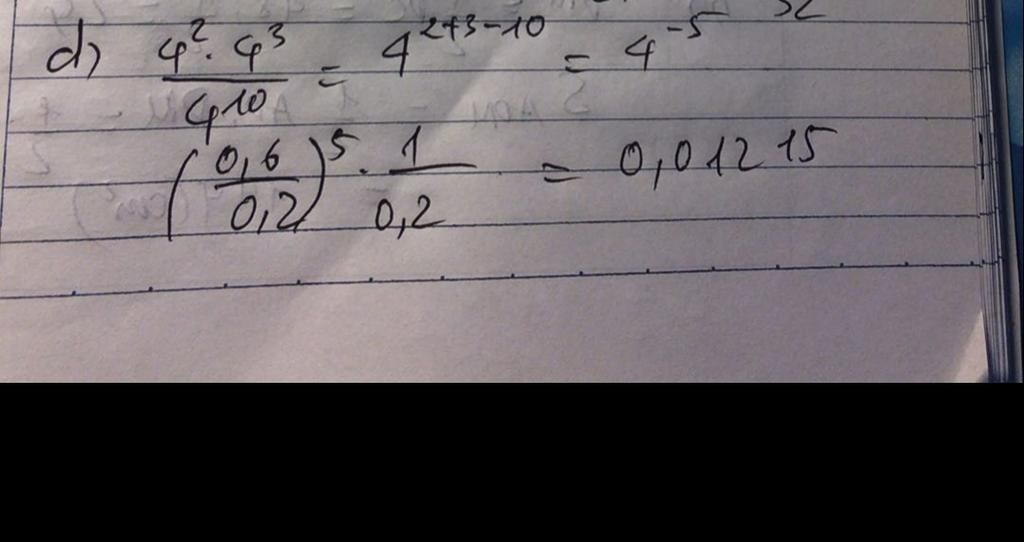 d) \frac{4^2 \cdot 4^3}{4^{10}} = 4^{2+3-10} = 4^{-5}
\left(\frac{0,6}{0,2}\right)^5 \cdot \frac{1}{0,2} = 0,01215